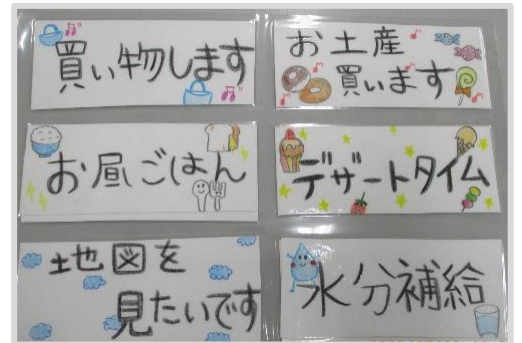 買い物します
お土産
買います
お昼ごはん
デザートタイム
地図を
見たいです
水分補給